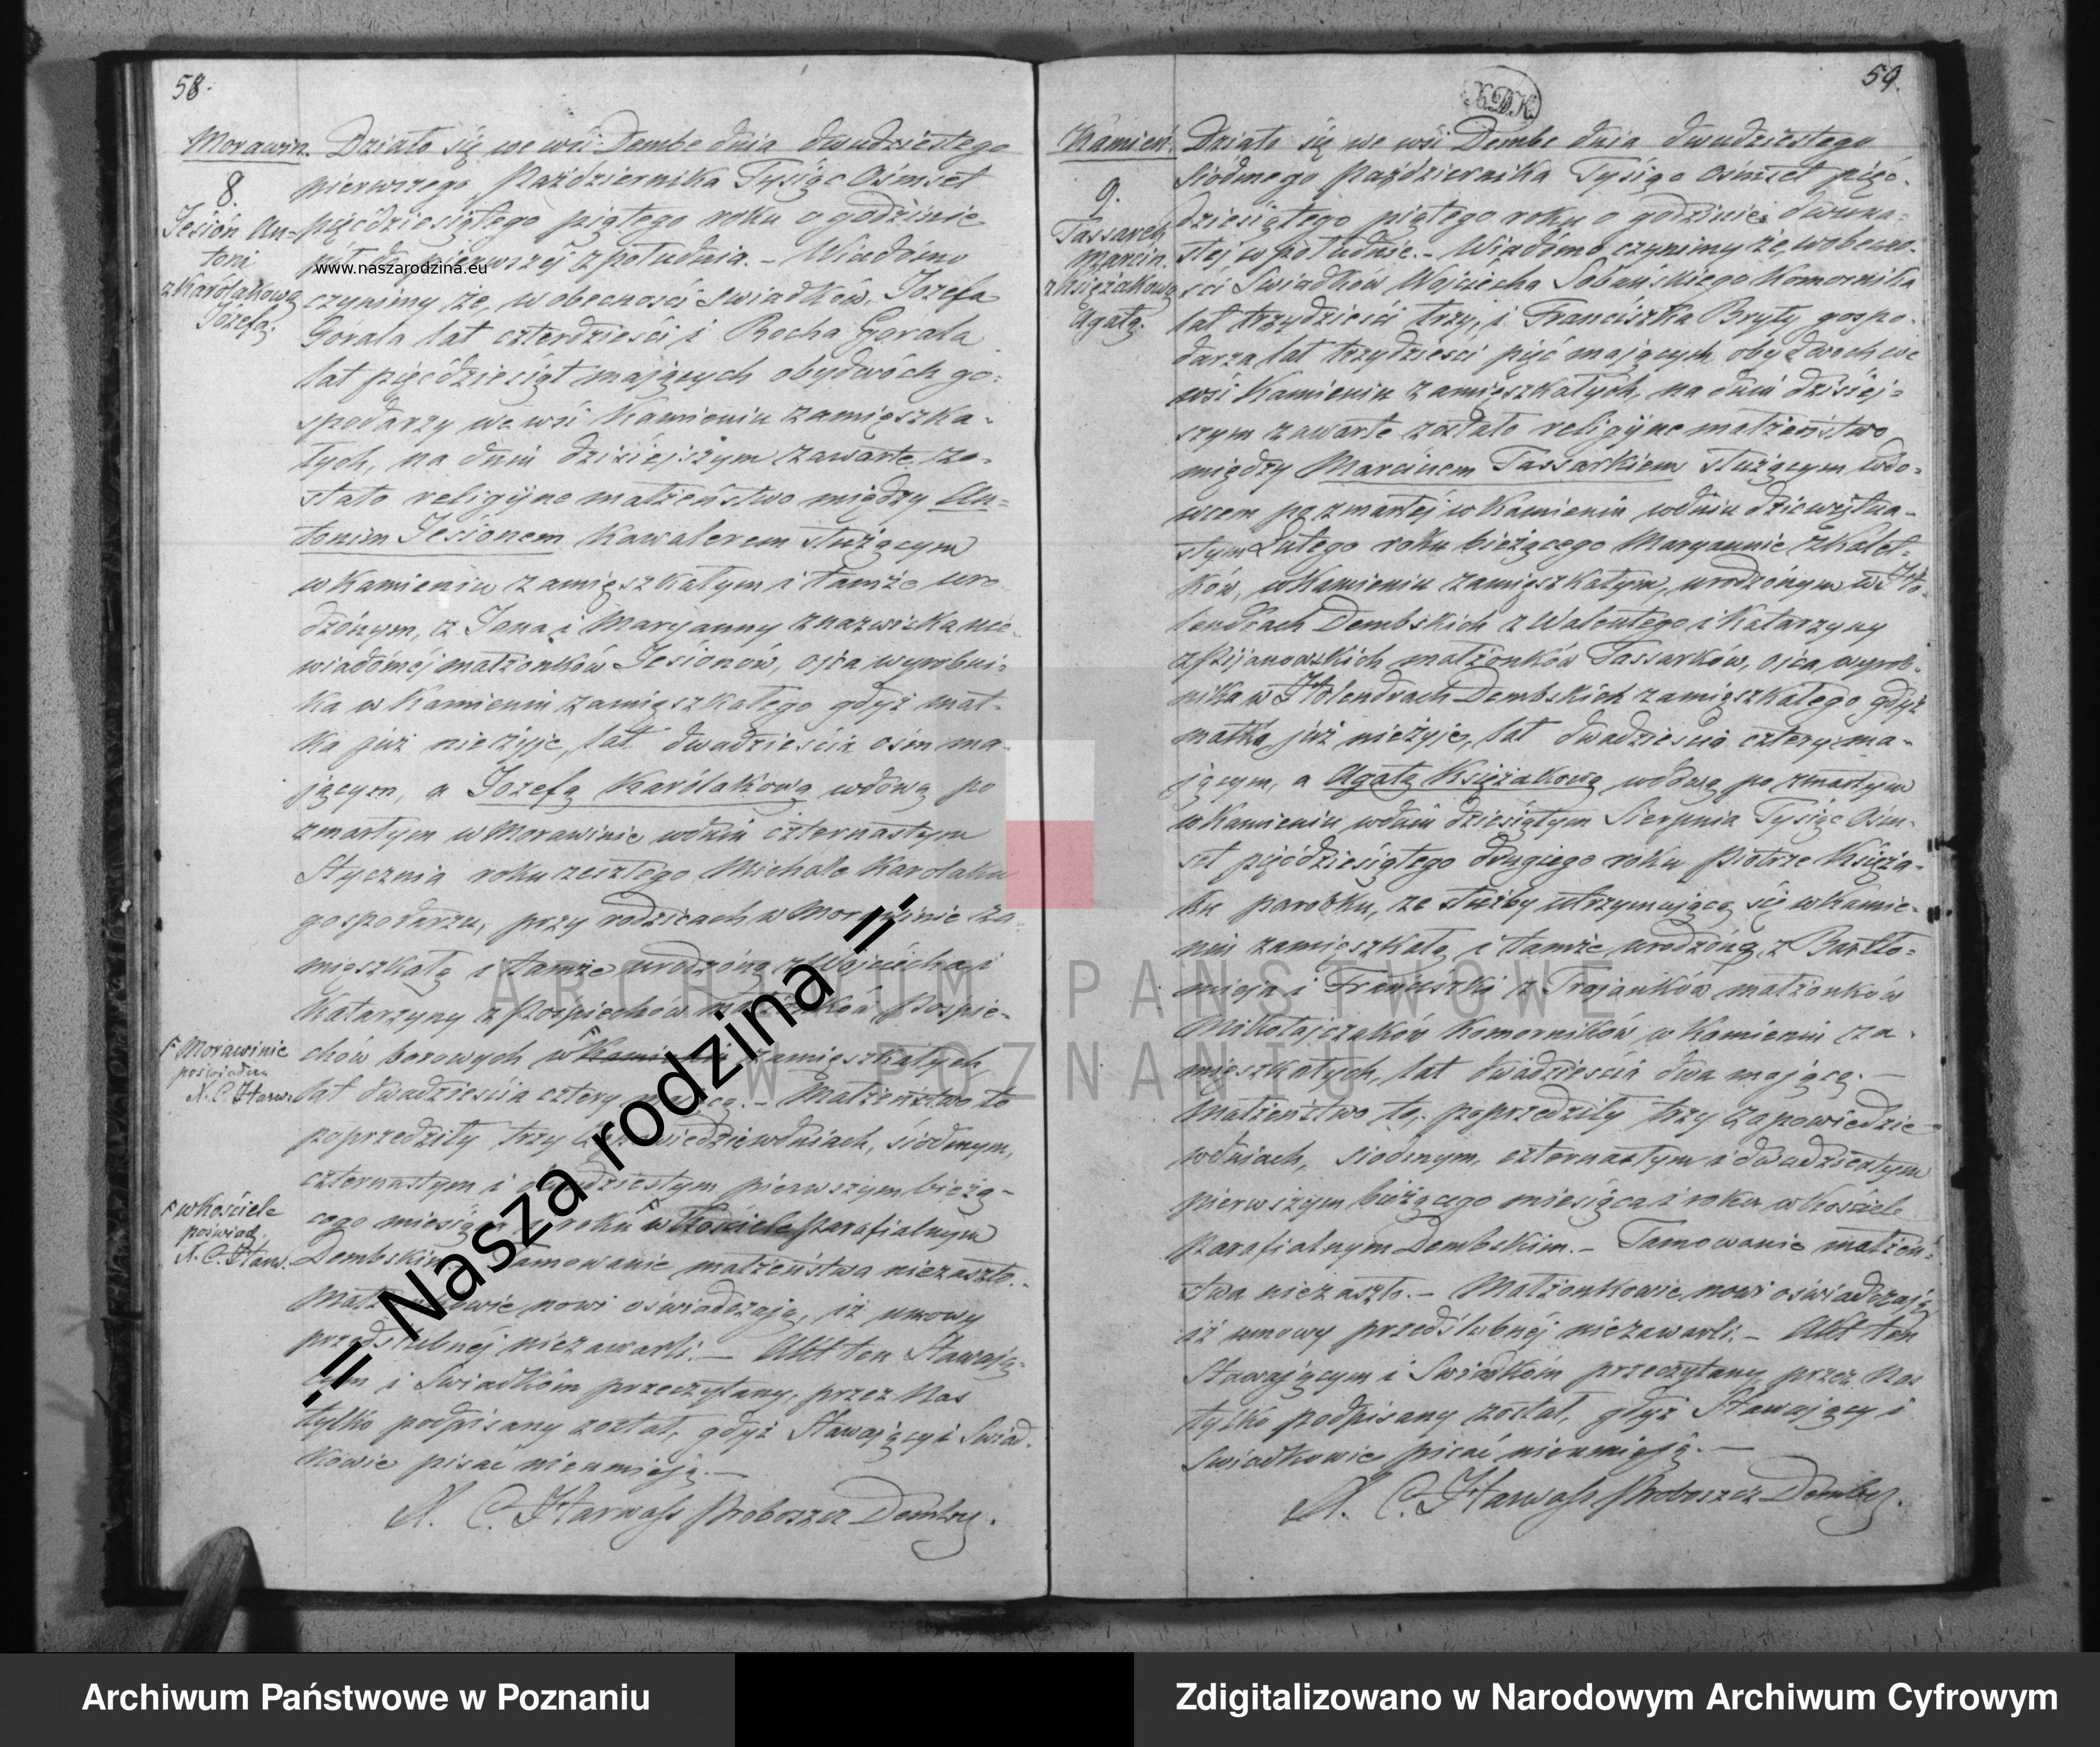 58.
Morawin.
8.
Jesión An=
toni
z Karólakową
Józefą.
Działo się we wsi Dembe dnia dwudziestego
pierwszego Października Tysiąc Ośmset
pięćdziesiątego piątego roku o godzinie
pierwszéj z południa. - Wiadomo
www.naszarodzina.eu
czynimy że, w obecności świadków, Józefa
Gorala lat czterdzieści i Rocha Gorala
lat pięćdziesiąt mających obydwóch go=
spodarzy we wsi Kamieniu zamięszka=
łych, na dniu dzisiéjszym zawarte zo=
stało religijne małżeństwo między An=
tonim Jesionem Kawalerem służącym
w Kamieniu zamięszkałym i tamże uro
dzónym, z Jana i Maryanny z nazwiska nie=
wiadoméj małżonków Jesionów, ojca wyrobni=
ka w Kamieniu zamięszkałego gdyż mat=
ka już nieżyje, lat dwadzieścia ośm ma=
jącym, a Józefą Karólakową wdową po
zmarłym w Morawinie wdniu czternastym
Stycznia roku zeszłego Michale Karolaku
gospodarzu, przy rodzicach w Morawinie za=
mięszkałą i tamże urodzóną z Wojciecha i
Katarzyny z Pospiechów małżonków Pospie=
chów borowych w Kamieniu zamięszkałych,
F Morawinie
poświadcza
X. C. Harw.
lat dwadzieścia cztery mającą. - Małżeństwo to
poprzedziły trzy Zapowiedzie wdniach, siódmym,
czternastym i dwudziestym pierwszym bieżą=
cego miesiąca i roku w Kościele Parafialnym
F w Kościele
poświad.
X. C. Harw.
Dembskim. - Tamowanie małżeństwa niezaszło. -
Małżonkowie nowi oświadczają, iż umowy
przedślubnéj niezawarli. - Akt ten Stawają=
cym i Świadkóm przeczytany, przez Nas
tylko podpisany został, gdyż Stawający i Świad=
kowie pisać nieumieją. -
X. C. Harwass Proboszcz Demby.
59.
X.D.K.
Kamień.
9.
Tassarek
Marcin.
z Księżakową
Agatą.
Działo się we wsi Dembe dnia dwudziestego
Siódmego Października Tysiąc Ośmset pięć=
dziesiątego piątego roku o godzinie dwuna=
stéj w południe. - Wiadomo czynimy że, w obecno=
ści Świadków Wojciecha Sobańskiego Komornika
lat trzydzieści trzy, i Franciszka Bryły gospo=
darza lat trzydzieści pięć mających obydwóch we
wsi Kamieniu zamięszkałych, na dniu dzisiéj=
szym zawarte zostało religijne małżeństwo
między Marcinem Tassarkiem służącym, wdo=
wcem po zmarłéj w Kamieniu wdniu dziewiętna=
stym Lutego roku bieżącego Maryannie z Kalet=
ków, w Kamieniu zamięszkałym, urodzónym w Ho=
lendrach Dembskich z Walentego i Katarzyny
z Pijanowskich małżonków Tassarków, ojca, wyrob=
nika w Holendrach Dembskich zamięszkałego gdyż
matka już nieżyje, lat dwadzieścia cztery ma=
jącym, a Agatą Księżakową wdową po zmarłym
w Kamieniu wdniu dziesiątym Sierpnia Tysiąc Ośm=
set pięćdziesiątego drugiego roku Piotrze Księża=
ku parobku, ze służby utrzymującą się w Kamie=
niu zamięszkałą, i tamże urodzóną z Bartło=
mieja i Franciszki z Trojanków małżonków
Mikołajczaków Komorników w Kamieniu za=
mięszkałych, lat dwadzieścia dwa mającą. -
Małżeństwo to, poprzedziły trzy Zapowiedzie
wdniach, siódmym, czternastym i dwudziestym
pierwszym bieżącego miesiąca i roku w Kościele
Parafialnym Dembskim. - Tamowanie małżeń=
stwa niezaszło. - Małżonkowie nowi oświadczają,
iż umowy przedślubnéj niezawarli. - Akt ten
Stawającym i Świadkóm przeczytany, przez Nas
tylko podpisany został, gdyż Stawający i
Świadkowie pisać nieumieją. -
X. C. Harwass Proboszcz Demby.
ARCHIWUM PAŃSTWOWE
W POZNANIU
!! Nasza rodzina !!
Archiwum Państwowe w Poznaniu
Zdigitalizowano w Narodowym Archiwum Cyfrowym